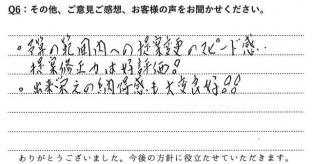 Q6：その他、ご意見ご感想、お客様の声をお聞かせください。
。予算の範囲内への提案変更のスピード感..
提案修正力は好評価!
。出来栄えの納得感も大変良好!!
ありがとうございました。今後の方針に役立たせていただきます。